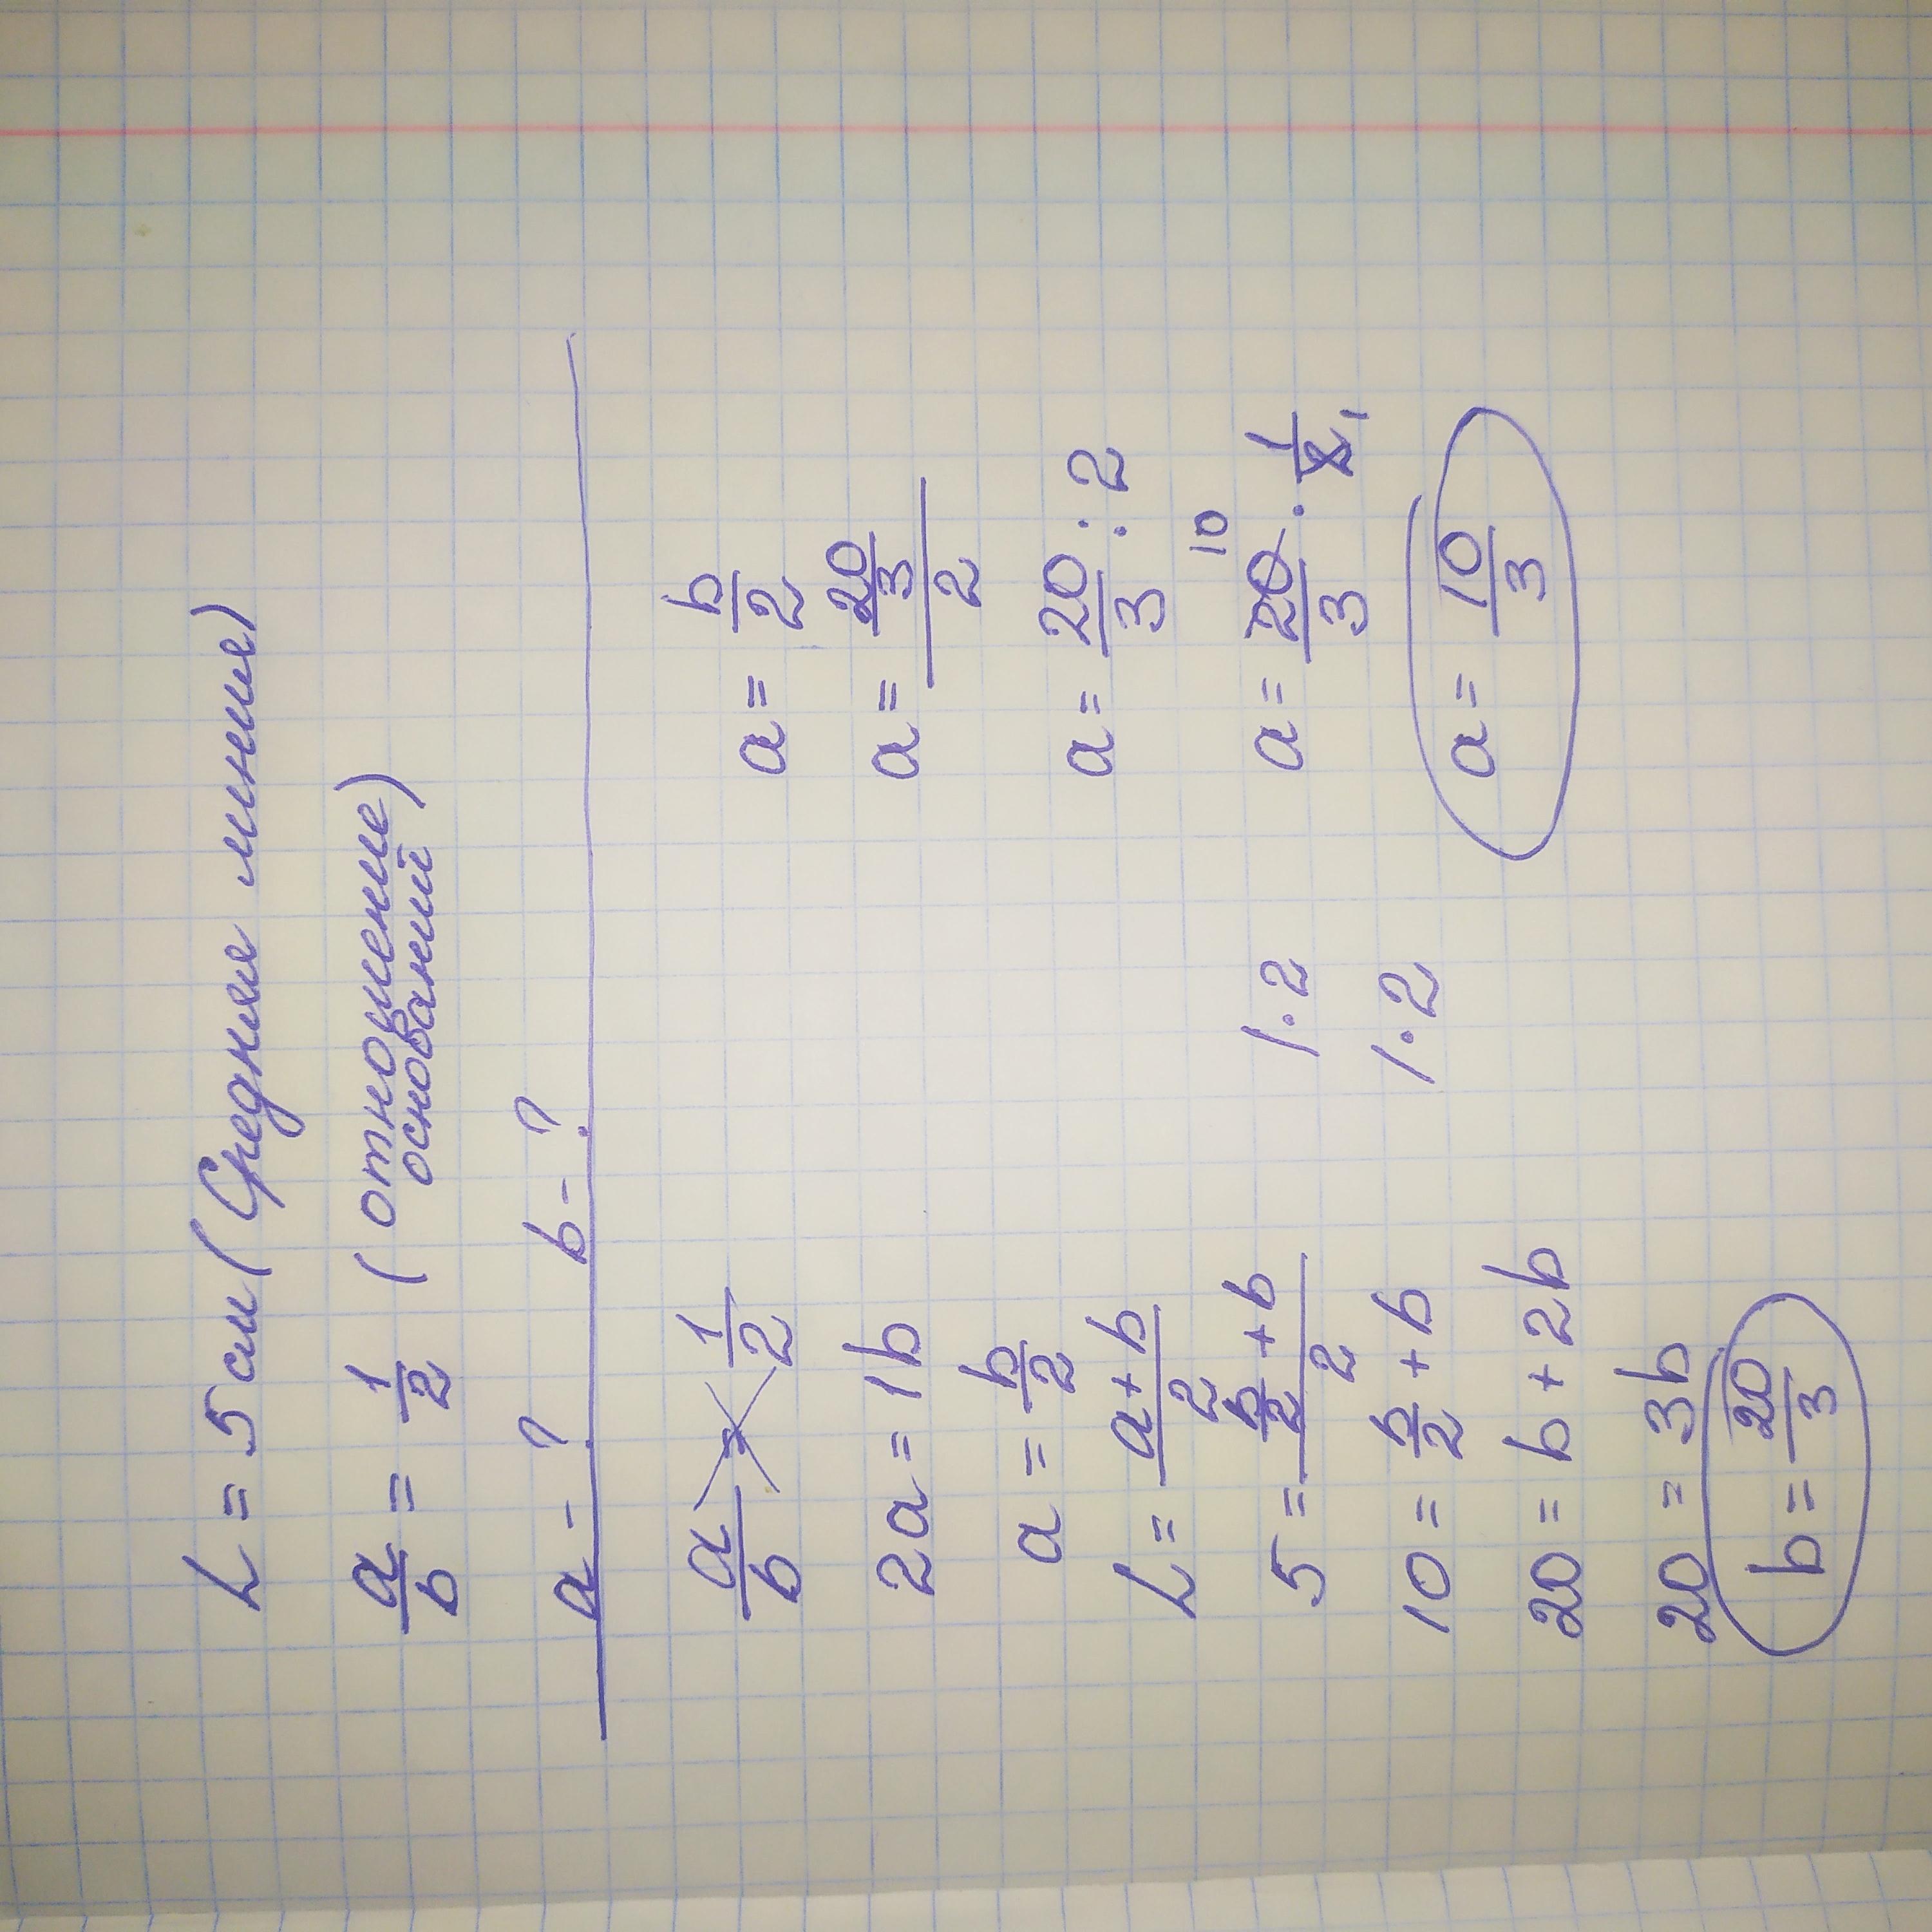 L = 5 см (Средняя линия)
a/b = 1/2 (отношение
оснований)
a - ? b - ?
a/b = 1/2
2a = 1b
a = b/2
L = (a + b)/2
5 = (b/2 + b)/2 | · 2
10 = b/2 + b | · 2
20 = b + 2b
20 = 3b
b = 20/3
a = b/2
a = (20/3)/2
a = 20/3 : 2
10
a = 20/3 · 1/2 1
a = 10/3